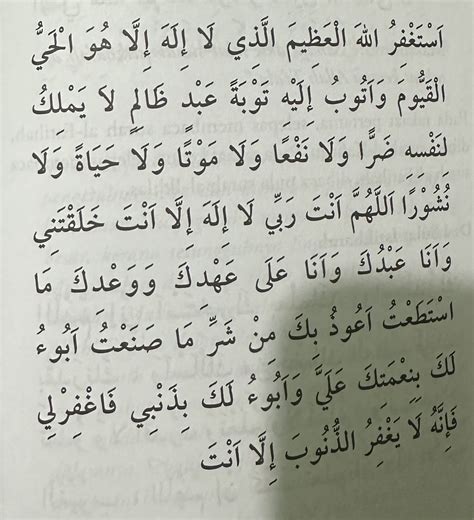 اَسْتَغْفِرُ اللهَ الْعَظِيمَ الَّذِي لَا إِلَهَ إِلَّا هُوَ الْحَيُّ
الْقَيُّومُ وَأَتُوبُ إِلَيْهِ تَوْبَةً عَبْدٍ ظَالِمٍ لَا يَمْلِكُ
لِنَفْسِهِ ضَرًّا وَلَا نَفْعًا وَلَا مَوْتًا وَلَا حَيَاةً وَلَا
نُشُوْرًا اَللَّهُمَّ اَنْتَ رَبِّي لَا إِلَهَ إِلَّا اَنْتَ خَلَقْتَنِي
وَاَنَا عَبْدُكَ وَاَنَا عَلَى عَهْدِكَ وَوَعْدِكَ مَا
اسْتَطَعْتُ اَعُوذُ بِكَ مِنْ شَرِّ مَا صَنَعْتُ اَبُوءُ
لَكَ بِنِعْمَتِكَ عَلَيَّ وَاَبُوءُ لَكَ بِذَنْبِي فَاغْفِرْلِي
فَإِنَّهُ لَا يَغْفِرُ الذُّنُوبَ إِلَّا اَنْتَ